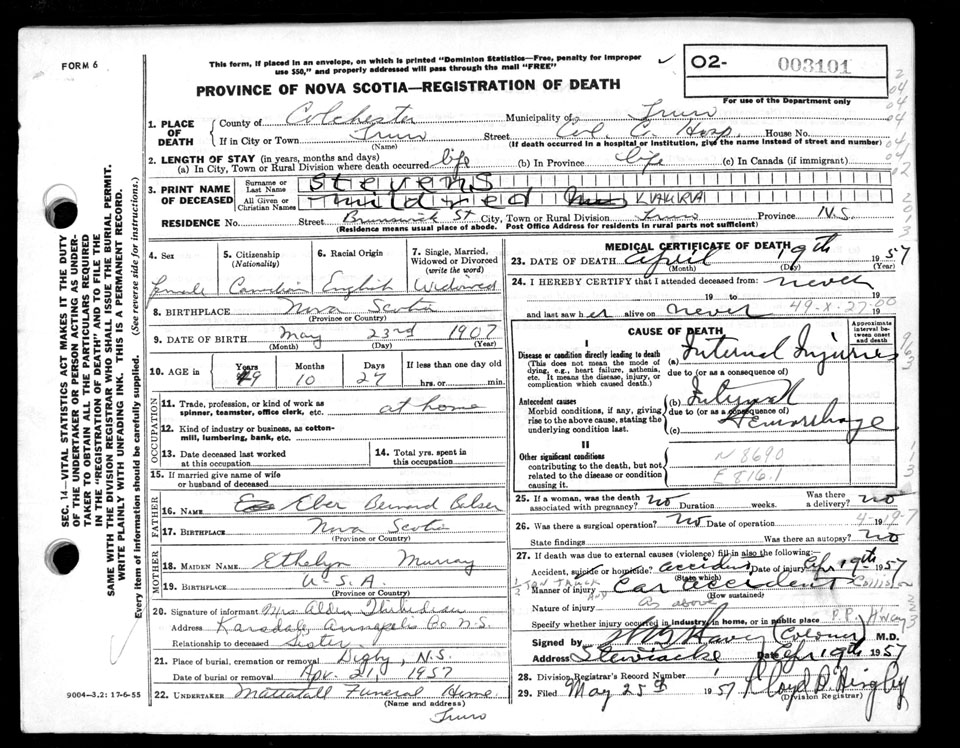 FORM 6
This form, if placed in an envelope, on which is printed "Dominion Statistics—Free, penalty for improper
use $50," and properly addressed will pass through the mail "FREE"
02- 003101
For use of the Department only
PROVINCE OF NOVA SCOTIA—REGISTRATION OF DEATH
1. PLACE OF DEATH
County of Colchester Municipality of Truro
If in City or Town Truro Street Col. C. Hosp. House No.
(Name) (If death occurred in a hospital or institution, give the name instead of street and number)
2. LENGTH OF STAY (in years, months and days)
(a) In City, Town or Rural Division where death occurred life (b) In Province life (c) In Canada (if immigrant)
3. PRINT NAME OF DECEASED
Surname or Last Name Stevens
All Given or Christian Names Mildred
RESIDENCE No. Street Brunswick St City, Town or Rural Division Truro Province N.S.
(Residence means usual place of abode. Post Office Address for residents in rural parts not sufficient)
4. Sex 5. Citizenship (Nationality) 6. Racial Origin 7. Single, Married, Widowed or Divorced (write the word)
female Canadian English Widowed
8. BIRTHPLACE Nova Scotia
(Province or Country)
9. DATE OF BIRTH May 23rd 1907
(Month) (Day) (Year)
10. AGE in Years 49 Months 10 Days 27 If less than one day old
hrs. or min.
OCCUPATION
11. Trade, profession, or kind of work as spinner, teamster, office clerk, etc. at home
12. Kind of industry or business, as cotton-mill, lumbering, bank, etc.
13. Date deceased last worked at this occupation
14. Total yrs. spent in this occupation
15. If married give name of wife or husband of deceased
FATHER
16. NAME Eber Bernard Belser
17. BIRTHPLACE Nova Scotia
(Province or Country)
MOTHER
18. MAIDEN NAME Ethelyn Murray
19. BIRTHPLACE U.S.A.
(Province or Country)
20. Signature of informant Mrs. Alden Thibidian
Address Karsdale, Annapolis Co. N.S.
Relationship to deceased Sister
21. Place of burial, cremation or removal Digby, N.S.
Date of burial or removal Apr. 21, 1957
22. UNDERTAKER Mattatall Funeral Home
(Name and address)
Truro
9004-3.2: 17-6-55
MEDICAL CERTIFICATE OF DEATH
23. DATE OF DEATH April 19th 1957
(Month) (Day) (Year)
24. I HEREBY CERTIFY that I attended deceased from: never 19
19 to 19
and last saw her alive on never 19
49-X-27-00
CAUSE OF DEATH
Approximate interval between onset and death
I
Disease or condition directly leading to death
(This does not mean the mode of dying, e.g., heart failure, asthenia, etc. It means the disease, injury, or complication which caused death.)
(a) Internal Injuries
due to (or as a consequence of)
Antecedent causes
Morbid conditions, if any, giving rise to the above cause, stating the underlying condition last.
(b) Internal
due to (or as a consequence of)
Hemorrhage
(c)
II
Other significant conditions
contributing to the death, but not related to the disease or condition causing it.
N 8690
E 816.1
25. If a woman, was the death associated with pregnancy? no Duration weeks. Was there a delivery? no
26. Was there a surgical operation? no Date of operation 19
State findings Was there an autopsy? no
27. If death was due to external causes (violence) fill in also the following:—
Accident, suicide or homicide? accident Date of injury Apr 19th 1957
(State which)
Manner of injury Car accident Collision
1/2 TON TRUCK AND
(How sustained)
Nature of injury As above
Specify whether injury occurred in industry, in home, or in public place P.P. Hway
Signed by (Coroner) M.D.
Address Stewiacke Date Apr 19th 1957
28. Division Registrar's Record Number
29. Filed May 25th 1957 Lloyd D.
(Division Registrar)
SEC. 14—VITAL STATISTICS ACT MAKES IT THE DUTY
OF THE UNDERTAKER OR PERSON ACTING AS UNDER-
TAKER TO OBTAIN ALL THE PARTICULARS REQUIRED
IN THE "REGISTRATION OF DEATH" AND TO FILE THE
SAME WITH THE DIVISION REGISTRAR WHO SHALL ISSUE THE BURIAL PERMIT.
WRITE PLAINLY WITH UNFADING INK. THIS IS A PERMANENT RECORD.
Every item of information should be carefully supplied. (See reverse side for instructions.)